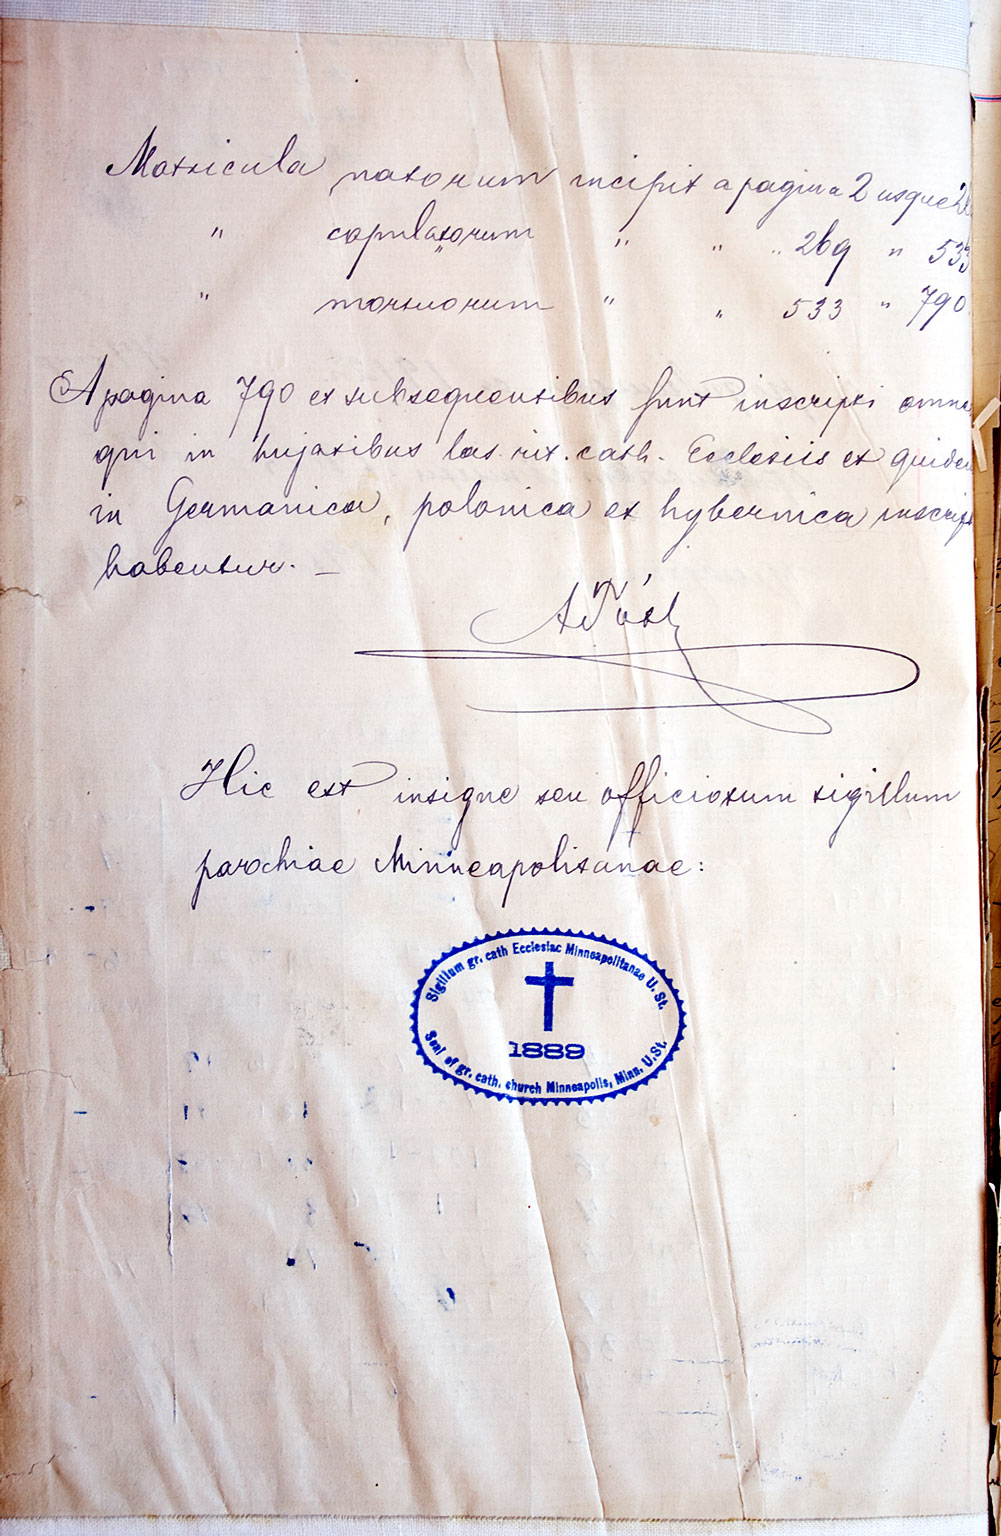 Matricula natorum incipit a pagina 2 usque
" copulatorum " " " 269 " 533
" mortuorum " " 533 " 790
A pagina 790 et subsequentibus sunt inscripti
qui in hujatibus lat. rit. cath. Ecclesiis et
in Germanica, polonica et hybernica
habentur. —
Hic est insigne seu officiosum sigillum
parochiae Minneapolitanae:
Sigillum gr. cath Ecclesiae Minneapolitanae U. St.
1889
Seal of gr. cath. church Minneapolis, Minn. U.St.